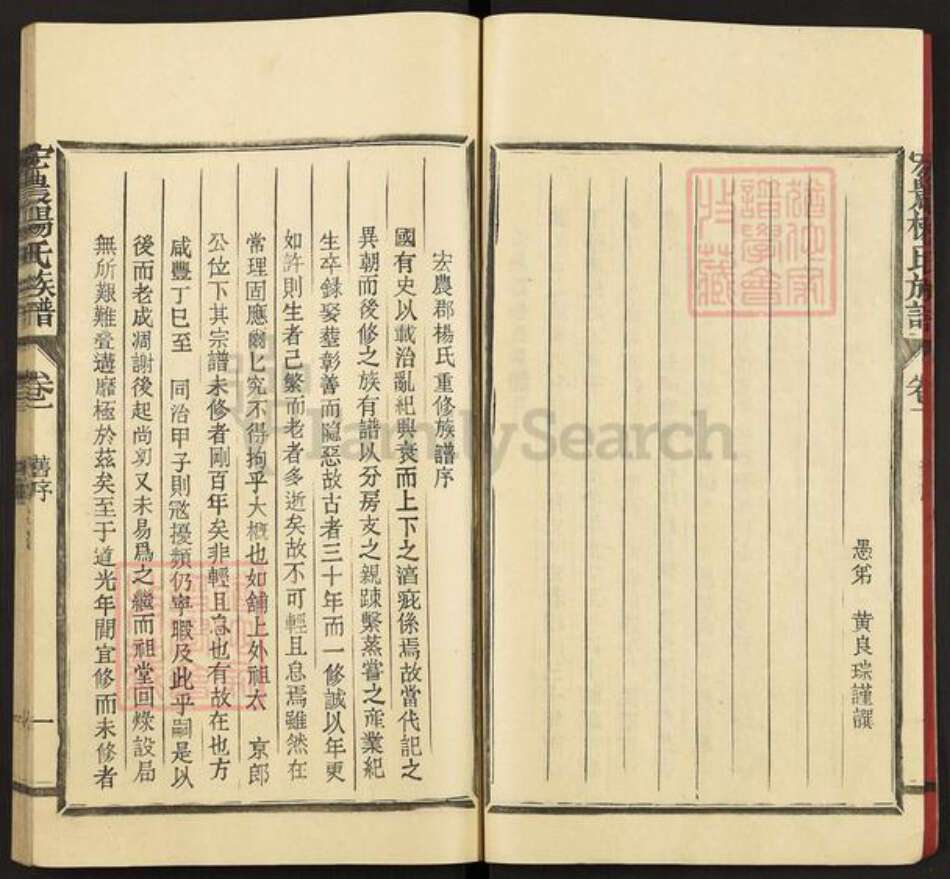 宏農楊氏族譜
卷一
愚弟 黄良琮謹譔
宏農郡楊氏重修族譜序
國有史以載治亂紀興衰而上下之清疵係焉故當代記之
異朝而後修之族有譜以分房支之親踈繫蒸嘗之產業紀
生卒録娶塟彰善而隠惡故古者三十年而一修誠以年更
如許則生者已繁而老者多逝矣故不可輕且怠焉雖然在
常理固應爾匕究不得拘乎大概也如舖上外祖太 京郎
公位下其宗譜未修者剛百年矣非輕且怠也有故在也方
咸豐丁巳至 同治甲子則寇擾頻仍寧暇及此乎嗣是以
後而老成凋謝後起尚幼又未易爲之繼而祖堂回燬設局
無所艱難叠遘靡極於茲矣至于道光年間宜修而未修者
宏農楊氏族譜
卷一
舊序
一
FamilySearch